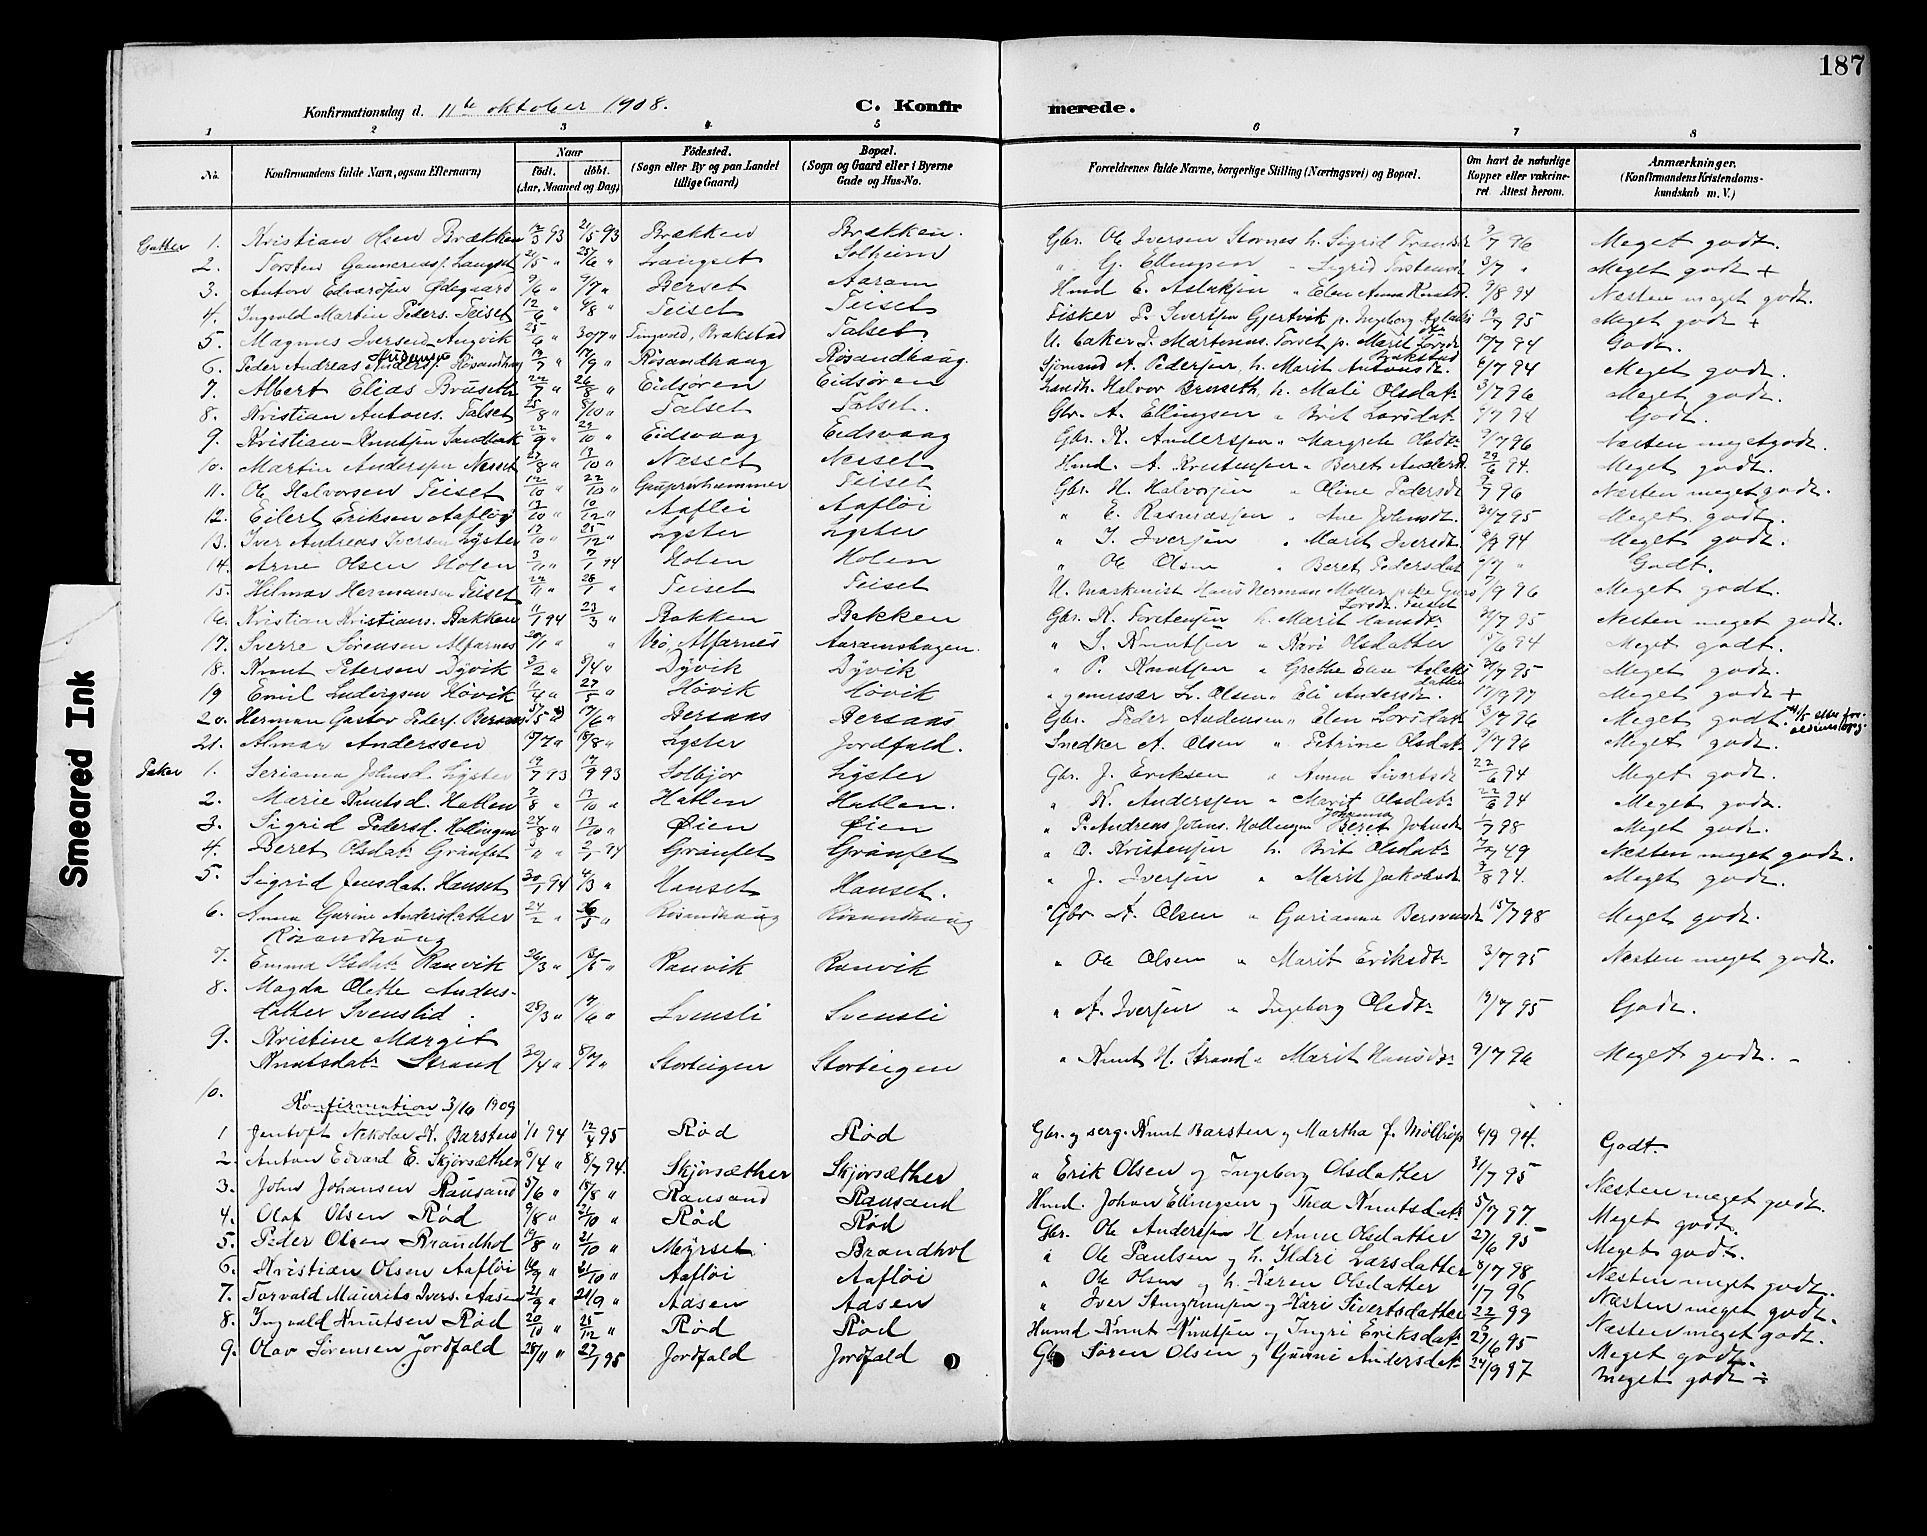 187
Konfirmationsdag d. 11te oktober 1908. C. Konfirmerede.
1 2 3 4 5 6 7 8
No. Konfirmandens fulde Navn, ogsaa Efternavn) Naar født. døbt. (Aar, Maaned og Dag) Fødested. (Sogn eller By og paa Landet tillige Gaard) Bopæl. (Sogn og Gaard eller i Byerne Gade og Hus-No. Forældrenes fulde Navne, borgerlige Stilling (Næringsvei) og Bopæl. Om havt de naturlige Kopper eller vakcineret. Attest herom. Anmærkninger. (Konfirmandens Kristendomskundskab m. V.)
Gutter 1. Kristian Olsen Brækken 12/3 93 21/5 93 Brækken Brækken. Gbr. Ole Iversen Stornes h. Sigrid 3/7 96 Meget godt.
2. Torsten Langset 21/5 " 25/6 " Langset Solheim " G. Ellingsen " Sigrid 3/7 " Meget godt +
3. Anton Edvardsen Ødegaard 9/6 " 9/7 " Berset Aaram Hmd E. Aslaksen " Elen Anna Knutsd. 9/8 94 Næsten meget godt.
4. Ingvald Martin Peders. Teiset 12/6 " 6/8 " Teiset Teiset Fisker P. Sivertsen Gjertvik p. Ingeborg 19/7 95 Meget godt +
5. Magnus Iversen Angvik 25/6 " 30/7 " Tingvold, Brakstad Talset. U. J. Martinus. Torvet p. Marit Brakstad 17/7 94 Godt.
6. Peder Andreas Anders. Røsandhaug 13/7 " 17/9 " Røsandhaug Røsandhaug. A. Pedersen, h. Marit Antonsdt. 6/7 94 Meget godt.
7. Albert Elias Bruseth 22/7 " 26/8 " Eidsøren Eidsøren Landh. Halvor Bruseth, h. Mali Olsdat. 3/7 96 Meget godt.
8. Kristian Antons. Talset 25/8 " 8/10 " Talset Talset. Gbr. A. Ellingsen " Brit Larsdat. 9/7 94 Godt.
9. Kristian Knutsen Sandbak 22/9 " 29/10 " Eidsvaag Eidsvaag Gbr. K. Andersen " Margrete Olsdt. 9/7 96 Næsten meget godt.
10. Martin Andersen Nesset 27/8 " 13/10 " Nesset Nesset Hmd. A. Kristensen " Beret Andersd. 29/6 94. Meget godt.
11. Ole Halvorsen Teiset 12/10 " 22/10 " Teiset Gbr. H. Halvorsen " Oline Pedersdt 3/7 96 Næsten meget godt.
12. Eilert Eriksen Aafløy 13/10 " 10/12 " Aafløi Aafløi " E. Rasmussen " Ane Johnsdt. 31/7 95 Meget godt.
13. Iver Andreas Iversen Lyster 12/10 " 25/12 " Lyster Lyster " I. Iversen " Marit Iversdt. 6/9 94 Meget godt.
14. Arne Olsen Holen 3/11 " 7/1 94 Holen Holen " Ole Olsen " Beret Pedersdat 9/7 " Godt.
15. Helmar Hermansen Teiset 22/11 " 28/1 " Teiset Teiset U. maskinist Hans Herman Møller, Larsdt. Teiset 9/9 96 Meget godt.
16. Kristian Kristians. Bakken 11/1 94 23/3 " Bakken Bakken Gbr. K. Torstensen h. Marit 31/7 95 Næsten meget godt.
17. Sverre Sørensen Alfarnes 20/1 " " Veø, Alfarnes Aaramshagen. " S. Knutsen " Kari Olsdatter 15/6 94 Meget godt.
18. Knut Petersen Dyvik 3/2 " 8/4 " Dyvik Dyvik " P. Knutsen " Grethe Elise Aslaksdatter 31/7 95 Meget godt.
19 Emil Ludvigsen Høvik 11/4 " 27/5 " Høvik Høvik " L. Olsen " Eli Andersdt. 17/9 97 Meget godt +
20. Herman Gustav Peders. Bersaas 17/6 " Bersaas Bersaas Gbr. Peder Andersen " Elen Larsdat. 3/7 96 Meget godt.
21. Almar Anderssen 15/7 " 18/8 " Lyster Jordfald. Snedker A. Olsen " Petrine Olsdat. 3/7 96 Meget godt.
Piker 1. Serianna Johnsd. Lyster 19/7 93 17/9 93 Solbjør Lyster Gbr. J. Eriksen " Anna Sivertsdt 22/6 94 Meget godt.
2. Marie Knutsd. Hatlen 7/8 " 13/10 " Hatlen Hatlen. " K. Andersen " Marit Olsdat. 22/6 94 Meget godt.
3. Sigrid Pedersd. Hollingen 24/8 " 13/10 " Øien Øien " P. Andreas Johns. Hollingen Johanna Beret Johnsdt 1/7 98 Meget godt.
4. Beret Olsdat. Grønset 3/11 " 2/1 94 Grønset Grønset " O. Kristensen h. Brit Olsdat. Næsten meget godt.
5. Sigrid Jensdat. Hanset 30/1 94 4/3 " Hanset Hanset. " J. Iversen " Marit Jakobsdt 3/8 94. Meget godt.
6. Anna Gurine Andersdatter 24/2 " 26/3 " Røsandhaug Røsandhaug Gbr A. Olsen " Gurianna 15/7 98 Meget godt.
Røsandhaug
7. Emma Olsdat. Ranvik 26/3 " 13/5 " Ranvik Ranvik " Ole Olsen " Marit Eriksdt. 3/7 95 Næsten meget godt.
8. Magda Olette Anders-
datter Svenslid. 28/3 " 17/6 " Svensli Svensli " A. Iversen " Ingeborg Olsdt. 19/7 95 Godt.
9. Kristine Margit
Knutsdat. Strand 30/4 " 8/7 " Storteigen Storteigen " Knut H. Strand " Marit Hansdt. 9/7 96 Meget godt. -
10.
Konfirmation 3/10 1909
1 Jentoft Nikolai K. Barsten 1/1 94 12/4 95 Rød Rød Gbr. og serg. Knut Barsten og Martha f. 6/9 94. Godt.
2. Anton Edvard E. Skjørsæther 6/4 " 8/7 94. Skjørsæther Skjørsæther " Erik Olsen og Ingeborg Olsdatter 31/7 95 Næsten meget godt.
3. John Johansen Rausand 5/6 " 15/8 " Rausand Rausand Hmd. Johan Ellingsen og Thea Knutsdat. 5/7 97. Meget godt.
4. Olaf Olsen Rød 9/8 " 21/10 " Rød Rød Gbr. Ole Andersen H Anne Olsdatter 27/6 95 Meget godt.
5. Peder Olsen Brandhol 19/8 " 21/10 " Myrset Brandhol " Ole Paulsen og h. Ildri Larsdatter 8/7 98 Næsten meget godt.
6. Kristian Olsen Aafløi 16/9 " 21/10 " Aafløi Aafløi " Ole Olsen og h. Karen Olsdatter 1/7 96 Næsten meget godt.
7. Torvald Maurits Ivers. Aasen 21/9 " 21/9 " Aasen Aasen " Iver og Kari Sivertsdatter 22/6 99 Næsten meget godt.
8. Ingvald Knutsen Rød 20/10 " 25/12 " Rød Rød Husmd Knut Knutsen og Ingri Eriksdat. 27/6 95 Meget godt.
9. Olav Sørensen Jordfald 28/11 " 27/1 95 Jordfald Jordfald Gbr Søren Olsen og Gurine Andersdat. 24/9 97 Meget godt ÷
Smeared Ink